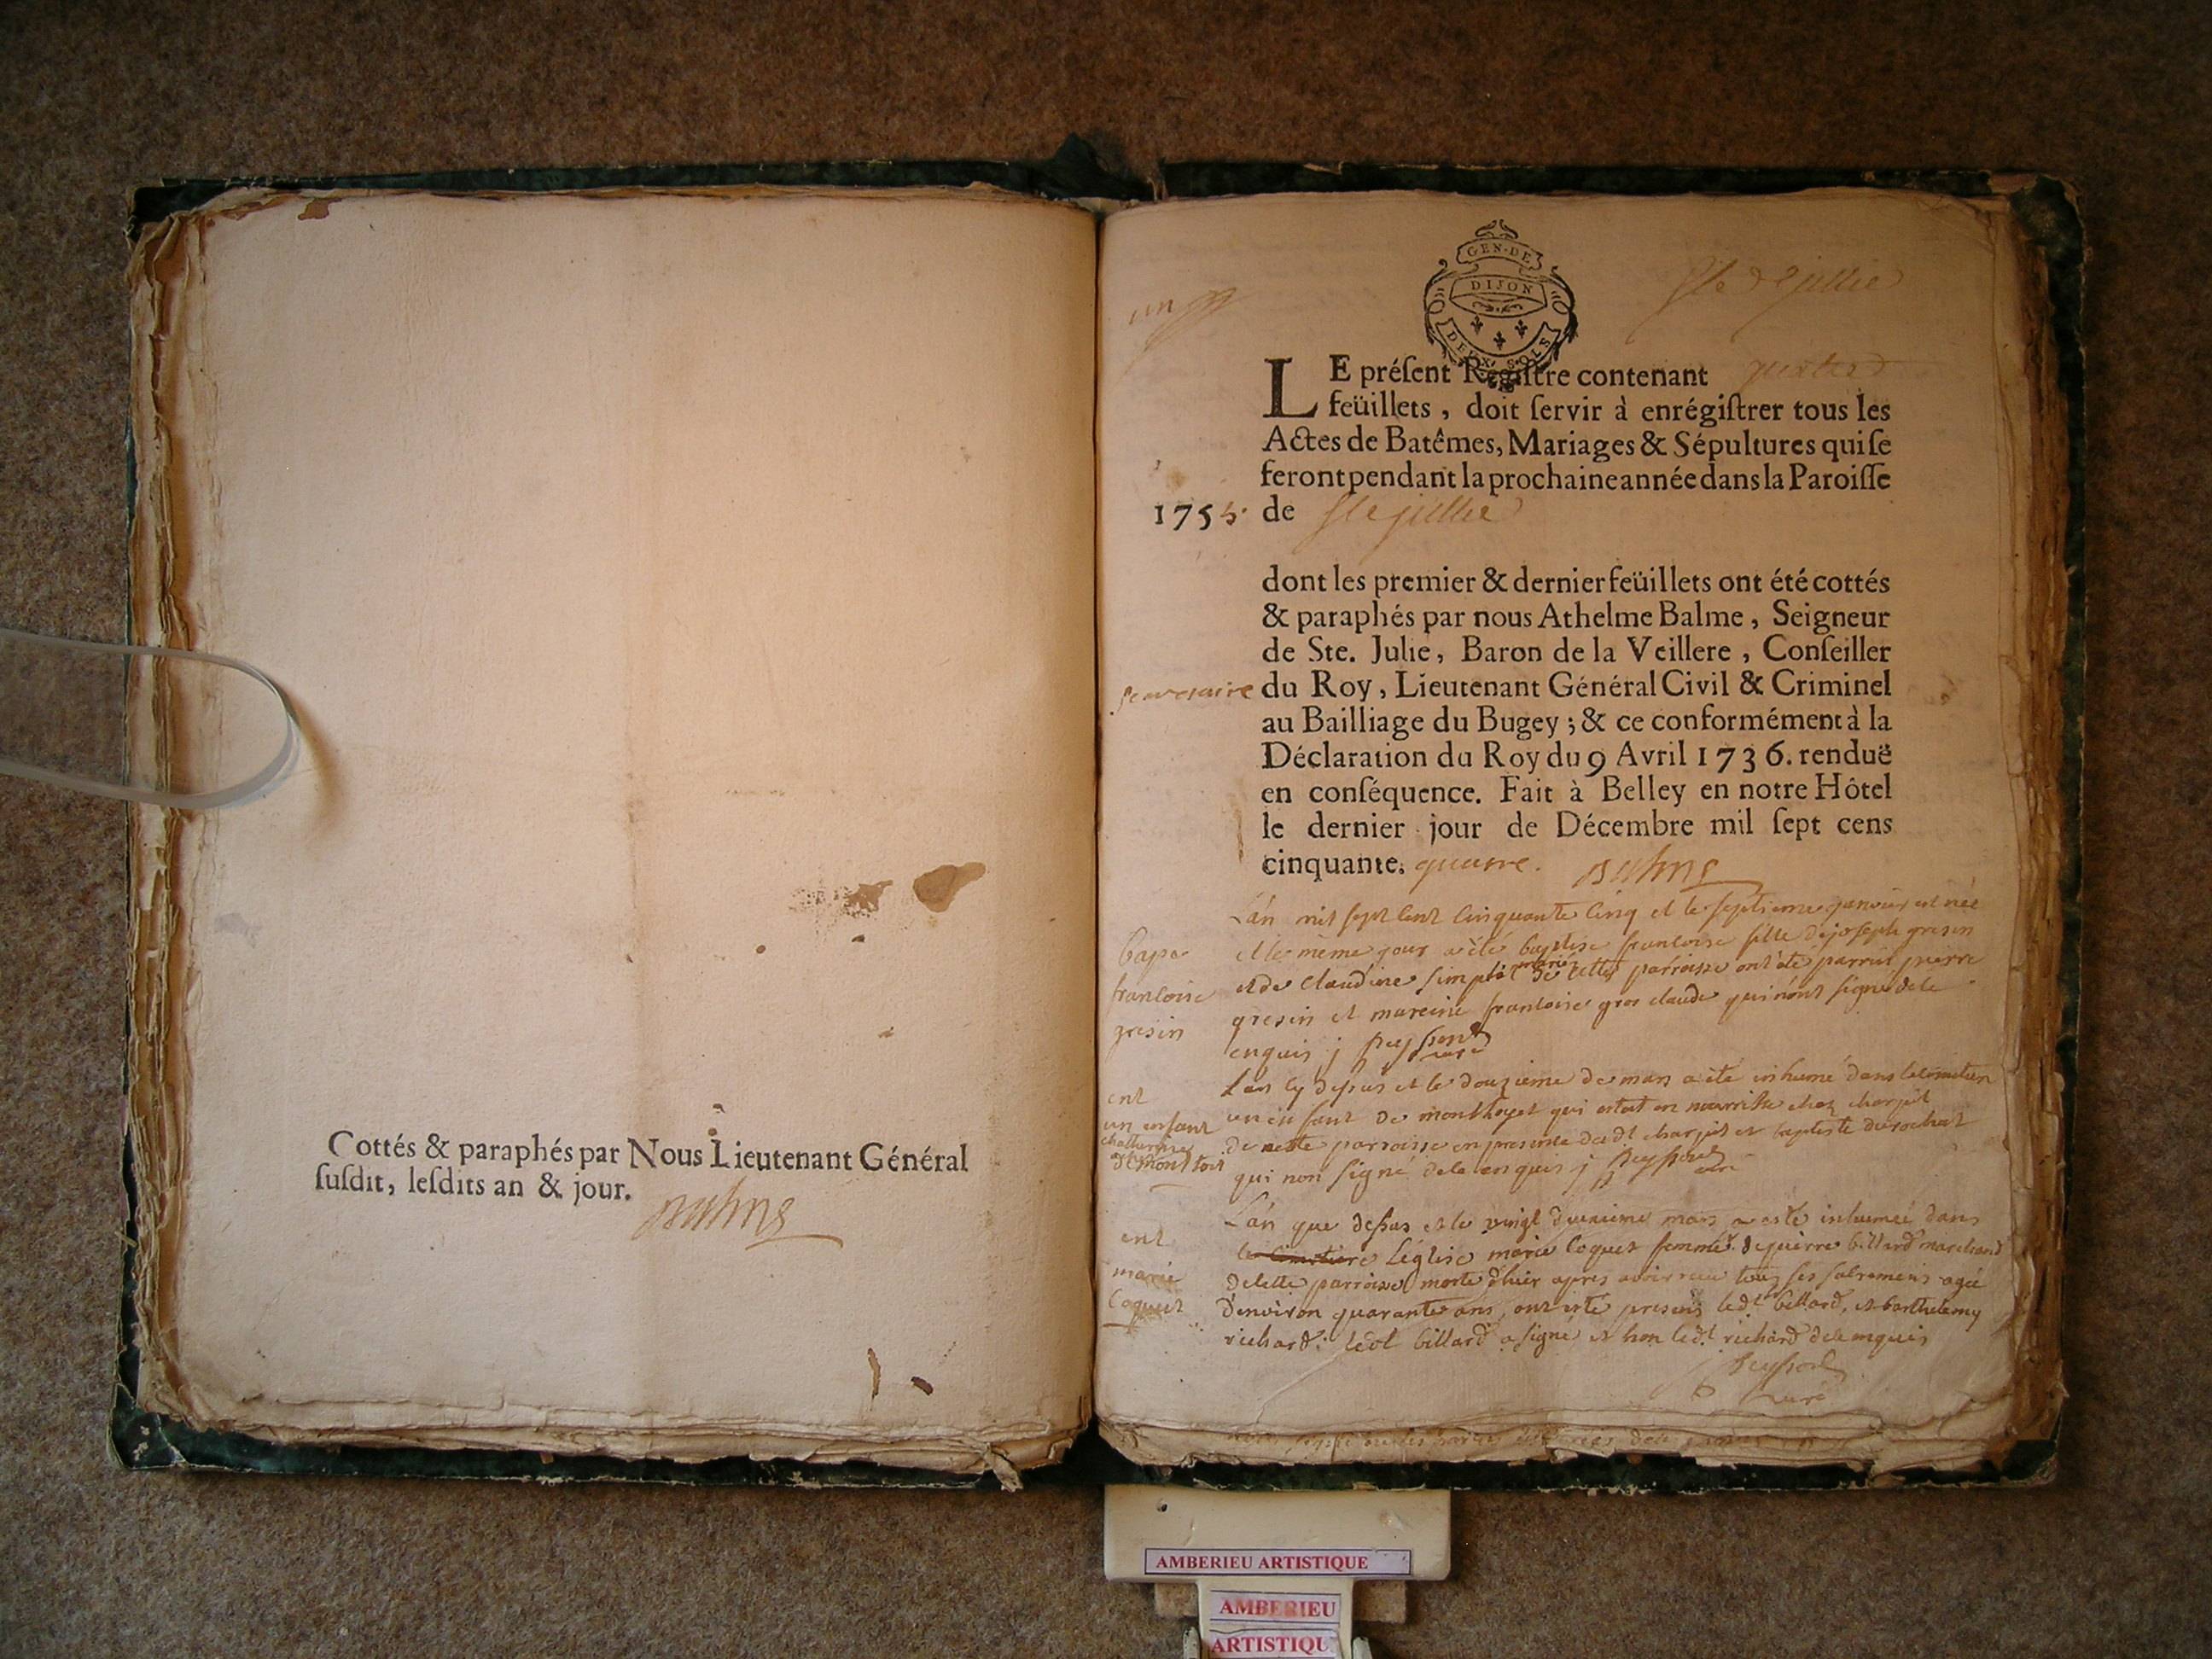 Cottés & paraphés par Nous Lieutenant Général
susdit, lesdits an & jour.
un
GEN·DE
DIJON
DEUX SOLS
Ste Jullie
LE présent Registre contenant
feüillets, doit servir à enrégistrer tous les
Actes de Batêmes, Mariages & Sépultures qui se
feront pendant la prochaine année dans la Paroisse
1755. de Ste jullie
dont les premier & dernier feüillets ont été cottés
& paraphés par nous Athelme Balme, Seigneur
de Ste. Julie, Baron de la Veillere, Conseiller
du Roy, Lieutenant Général Civil & Criminel
au Bailliage du Bugey; & ce conformément à la
Déclaration du Roy du 9 Avril 1736. renduë
en conséquence. Fait à Belley en notre Hôtel
le dernier jour de Décembre mil sept cens
cinquante. quatre.
bap
francoise
gresin
L'an mil sept cent cinquante cinq et le septieme janvier est née
et le meme jour a été baptisé francoise fille de joseph gresin
et de claudine mariés de cette parroisse ont été parrain pierre
gresin et mareine francoise gros claude qui n'ont signé de ce
enquis j peysson curé
ent
un enfant
de montloet
L'an cy dessus et le douzieme de mars a été inhumé dans le cimetiere
un enfant de qui estoit en nourrisse chez charpit
de cette parroisse en presence dudt charpit et baptiste durochat
qui non signé de ce enquis j peysson curé
ent
marie
coquet
L'an que dessus et le vingt deuxieme mars a esté inhumeé dans
l'église marie coquet femme de pierre billard marchand
de cette parroisse morte d'hier apres avoir receu tous ses sacremens ageé
d'environ quarante ans, ont esté presens ledt billard, et barthelemy
richard. ledt billard a signé et non ledt richard de ce enquis
peysson
curé
AMBERIEU ARTISTIQUE
AMBERIEU
ARTISTIQU